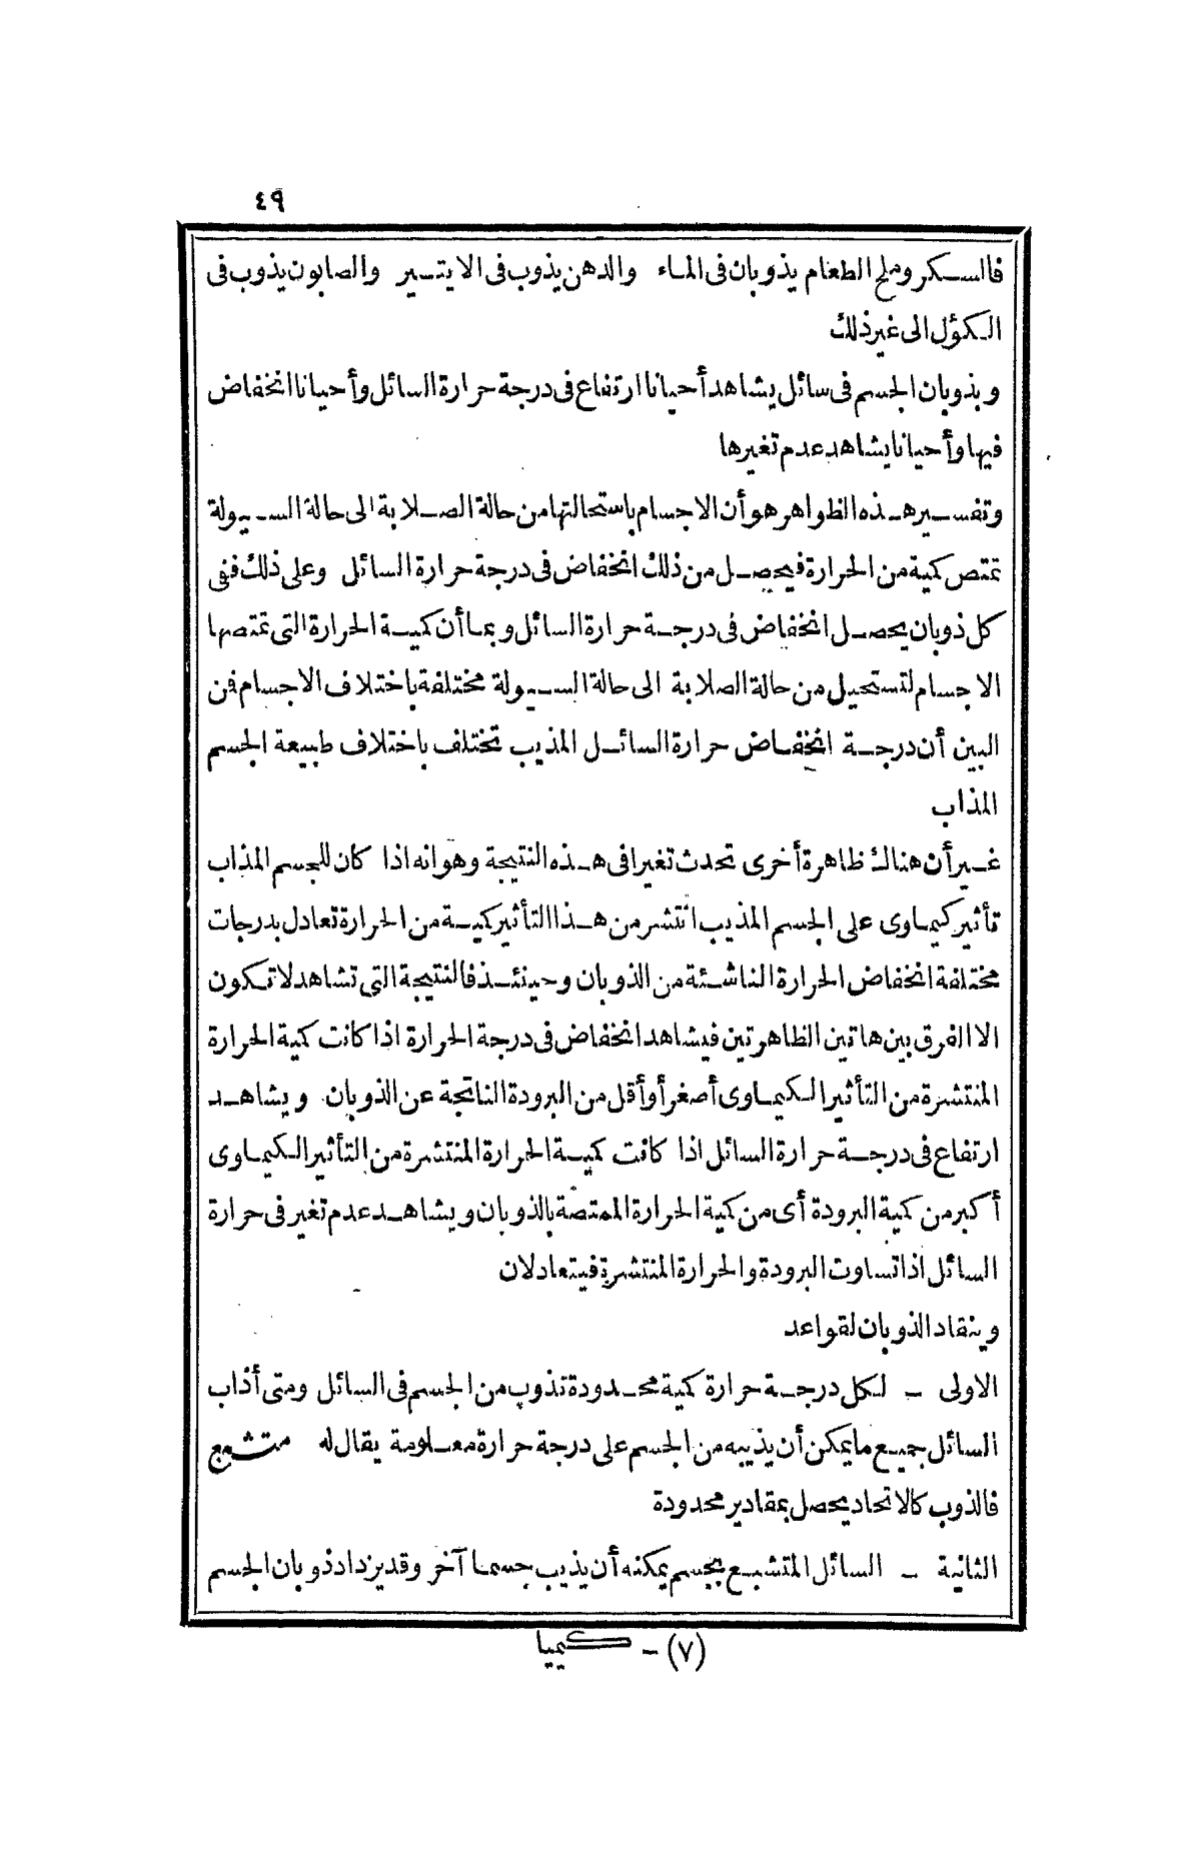 ٤٩
فالسكر وملح الطعام يذوبان فى الماء والدهن يذوب فى الايتير والصابون يذوب فى
الكؤل الى غير ذلك
وبذوبان الجسم فى سائل يشاهد أحيانا ارتفاع فى درجة حرارة السائل وأحيانا انخفاض
فيها وأحيانا يشاهد عدم تغيرها
وتفسير هذه الظواهر هو أن الاجسام باستحالتها من حالة الصلابة الى حالة السيولة
تمتص كمية من الحرارة فيحصل من ذلك انخفاض فى درجة حرارة السائل وعلى ذلك ففى
كل ذوبان يحصل انخفاض فى درجة حرارة السائل وبما أن كمية الحرارة التى تمتصها
الاجسام لتستحيل من حالة الصلابة الى حالة السيولة مختلفة باختلاف الاجسام فمن
البين أن درجة انخفاض حرارة السائل المذيب تختلف باختلاف طبيعة الجسم
المذاب
غير أن هناك ظاهرة أخرى تحدث تغيرا فى هذه النتيجة وهو انه اذا كان للجسم المذاب
تأثير كيماوى على الجسم المذيب انتشر من هذا التأثير كمية من الحرارة تعادل بدرجات
مختلفة انخفاض الحرارة الناشئة من الذوبان وحينئذ فالنتيجة التى تشاهد لا تكون
الا الفرق بين هاتين الظاهرتين فيشاهد انخفاض فى درجة الحرارة اذا كانت كمية الحرارة
المنتشرة من التأثير الكيماوى أصغر أو أقل من البرودة الناتجة عن الذوبان ويشاهد
ارتفاع فى درجة حرارة السائل اذا كانت كمية الحرارة المنتشرة من التأثير الكيماوى
أكبر من كمية البرودة أى من كمية الحرارة الممتصة بالذوبان ويشاهد عدم تغير فى حرارة
السائل اذا تساوت البرودة والحرارة المنتشرة فيتعادلان
وينقاد الذوبان لقواعد
الاولى - لكل درجة حرارة كمية محدودة تذوب من الجسم فى السائل ومتى أذاب
السائل جميع ما يمكن أن يذيبه من الجسم على درجة حرارة معلومة يقال له متشبع
فالذوب كالاتحاد يحصل بمقادير محدودة
الثانية - السائل المتشبع بجسم يمكنه أن يذيب جسما آخر وقد يزداد ذوبان الجسم
(٧) - كيميا